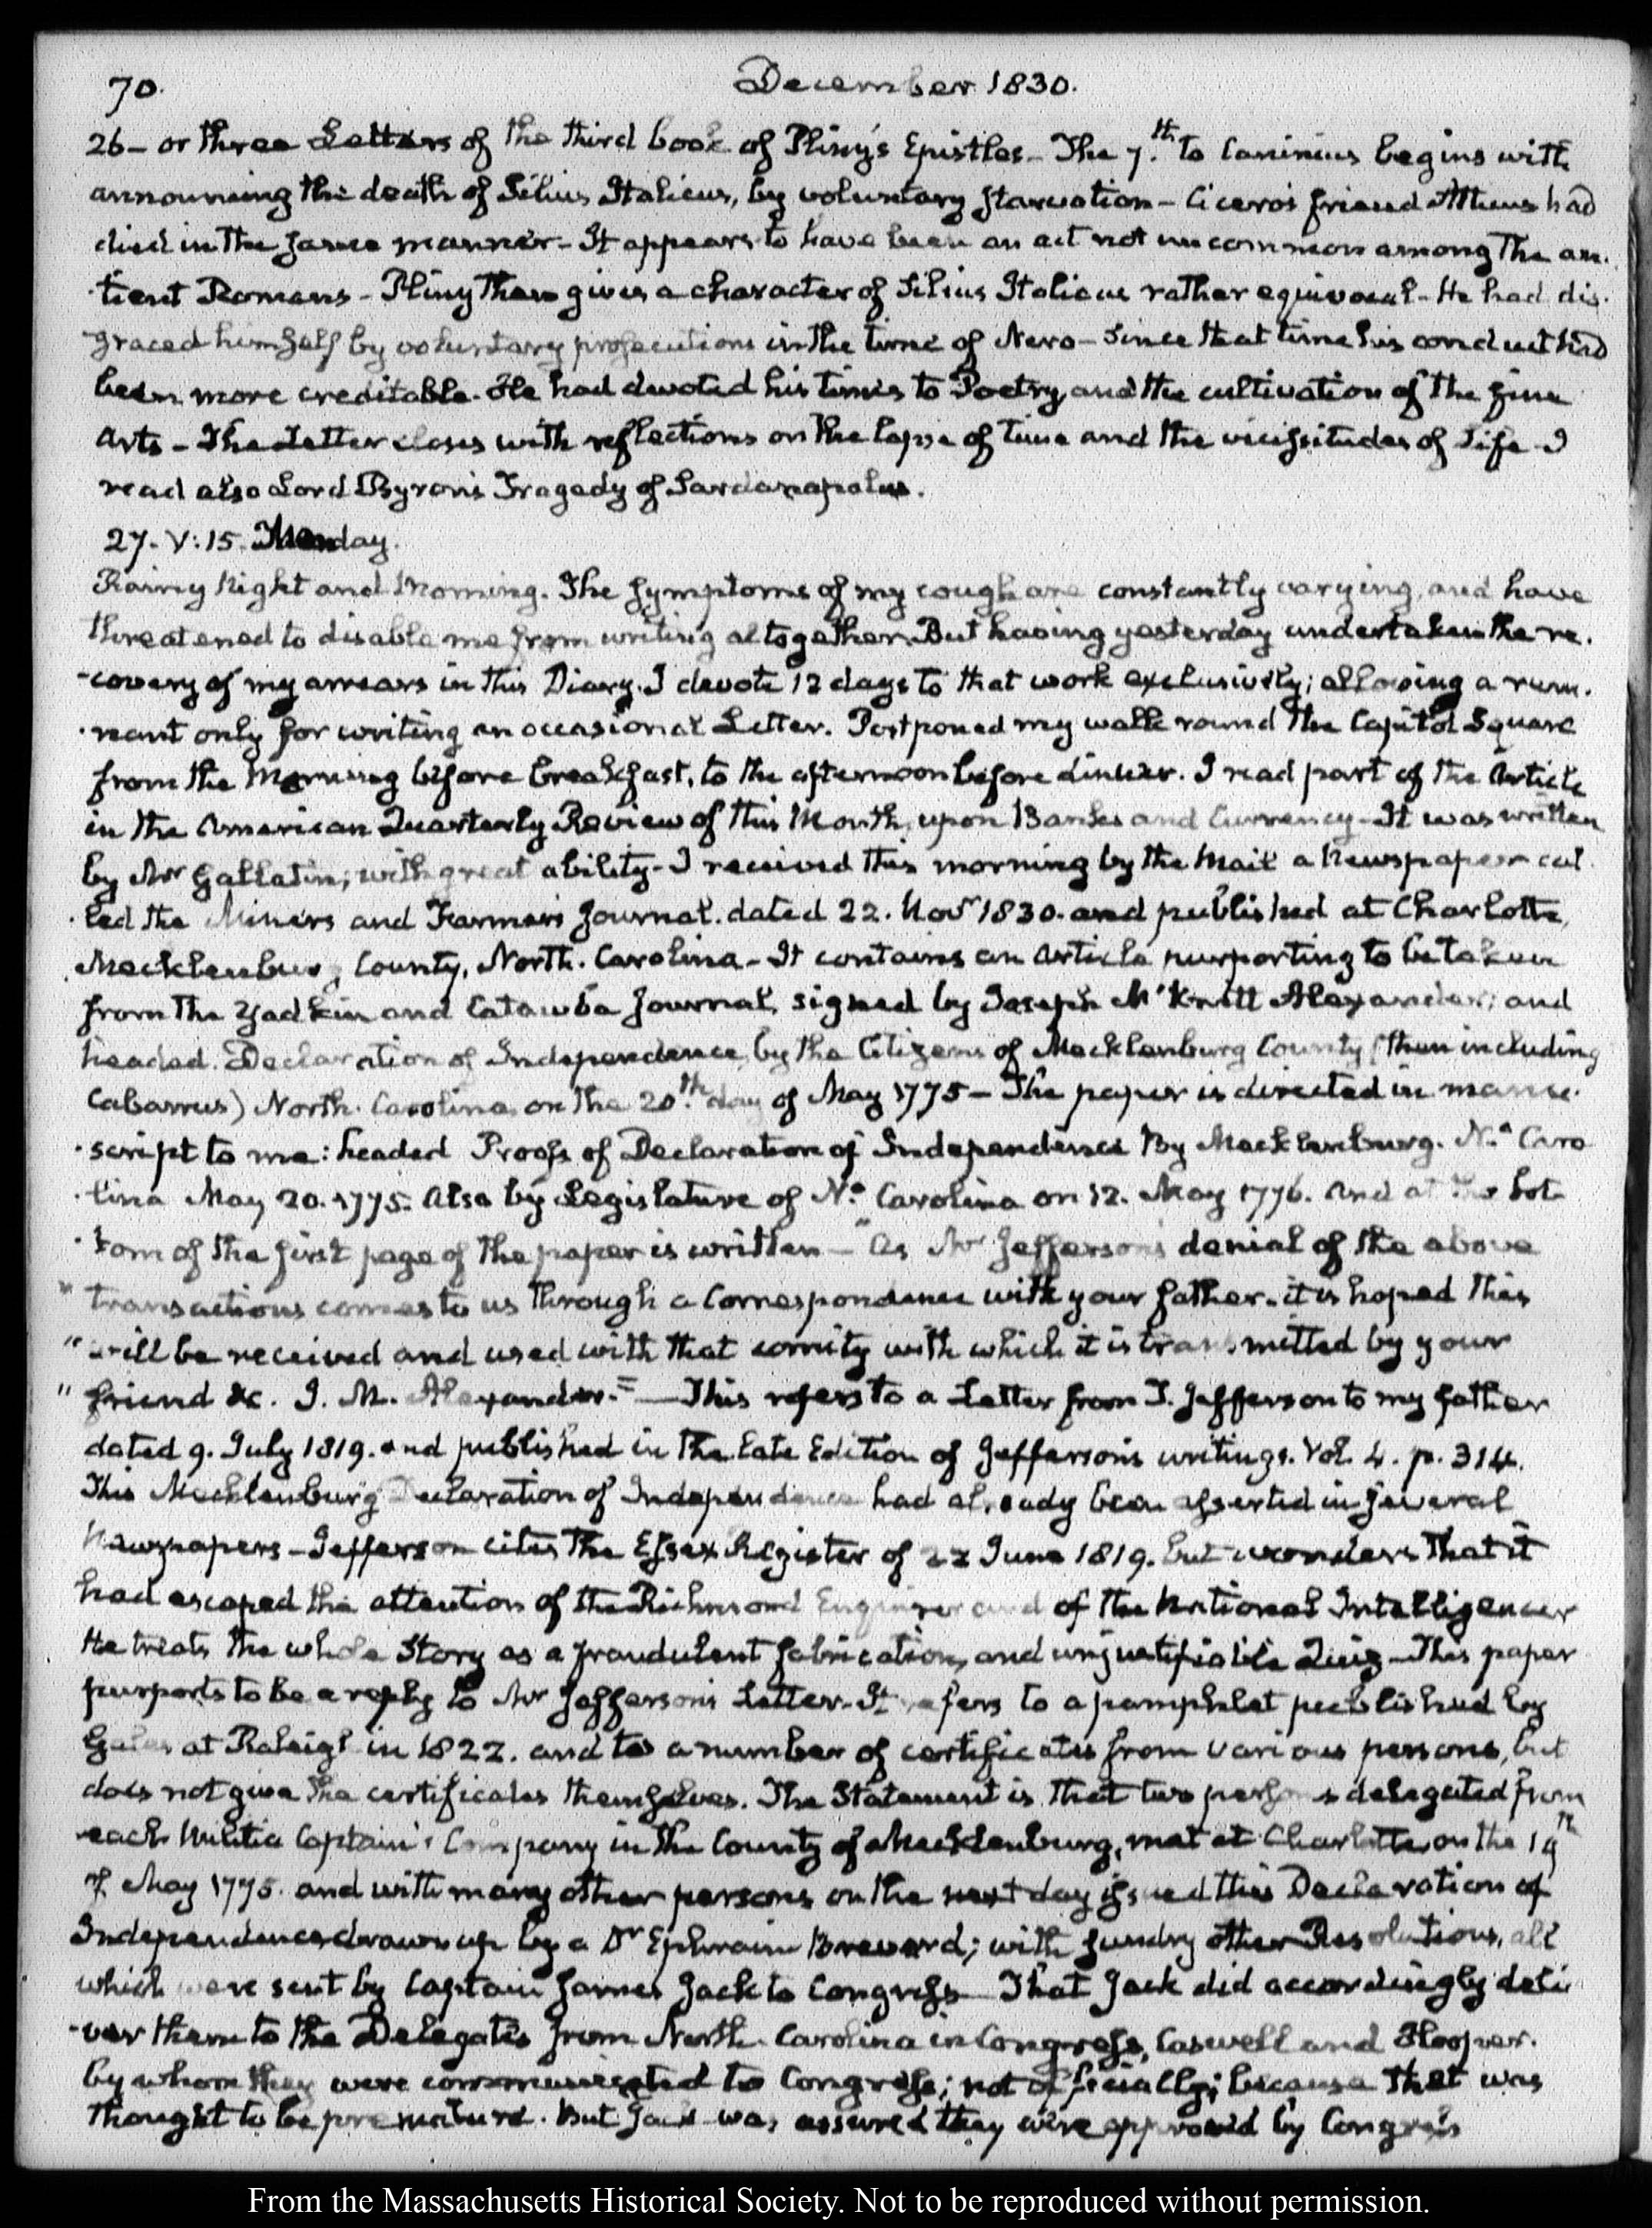 70.
December 1830.
26- or three Letters of the third book of Pliny's Epistles- The 7.th to Caninius begins with
announcing the death of Silius Italicus, by voluntary starvation- Cicero's friend Atticus had
died in the same manner- It appears to have been an act not uncommon among the an-
-tient Romans- Pliny then gives a character of Silius Italicus rather equivocal- He had dis-
-graced himself by voluntary prosecutions in the time of Nero- Since that time his conduct had
been more creditable. He had devoted his times to Poetry and the cultivation of the fine
Arts- The Letter closes with reflections on the lapse of time and the vicissitudes of Life- I
read also Lord Byron's Tragedy of Sardanapalus.
27. V:15. Monday.
Rainy Night and Morning. The symptoms of my cough are constantly varying, and have
threatened to disable me from writing altogether. But having yesterday undertaken the re-
-covery of my arrears in this Diary. I devote 12 days to that work exclusively; allowing a rem-
-nant only for writing an occasional Letter. Postponed my walk round the Capitol Square
from the Morning before breakfast, to the afternoon before dinner. I read part of the Article
in the American Quarterly Review of this Month, upon Banks and Currency- It was written
by Mr Gallatin; with great ability- I received this morning by the Mail a Newspaper cal-
-led the Miners and Farmers Journal. dated 22. Novr 1830. and published at Charlotte,
Mecklenburg County, North-Carolina- It contains an Article purporting to be taken
from the Yadkin and Catawba Journal, signed by Joseph McKnitt Alexander; and
headed. Declaration of Independence, by the Citizens of Mecklenburg County (then including
Cabarrus) North-Carolina on the 20.th day of May 1775- The paper is directed in manu-
-script to me: headed Proofs of Declaration of Independence By Mecklenburg. No Caro
-lina May 20. 1775. Also by Legislature of No Carolina on 12. May 1776. And at the bot-
-tom of the first page of the paper is written- "As Mr Jefferson's denial of the above
"transactions comes to us through a Correspondence with your father- it is hoped this
"will be received and used with that comity with which it is transmitted by your
"friend &c. J. M. Alexander."- This refers to a Letter from T. Jefferson to my father
dated 9. July 1819. and published in the late Edition of Jefferson's writings. Vol. 4. p. 314.
This Mecklenburg Declaration of Independence had already been asserted in several
Newspapers- Jefferson cites the Essex Register of 22 June 1819. but wonders that it
had escaped the attention of the Richmond Enquirer and of the National Intelligencer
He treats the whole Story as a fraudulent fabrication, and unjustifiable Quiz- This paper
purports to be a reply to Mr Jefferson's Letter- It refers to a pamphlet published by
Gales at Raleigh in 1822. and to a number of certificates from various persons, but
does not give the certificates themselves. The Statement is that two persons delegated from
each Militia Captain's Company in the County of Mecklenburg, met at Charlotte on the 19th
of May 1775. and with many other persons on the next day issued this Declaration of
Independence drawn up by a Dr Ephraim Brevard; with sundry other Resolutions, all
which were sent by Captain James Jack to Congress- That Jack did accordingly deli
-ver them to the Delegates from North-Carolina in Congress, Caswell and Hooper.
by whom they were communicated to Congress; not officially; because that was
thought to be premature. But Jack was assured they were approved by Congress
From the Massachusetts Historical Society. Not to be reproduced without permission.